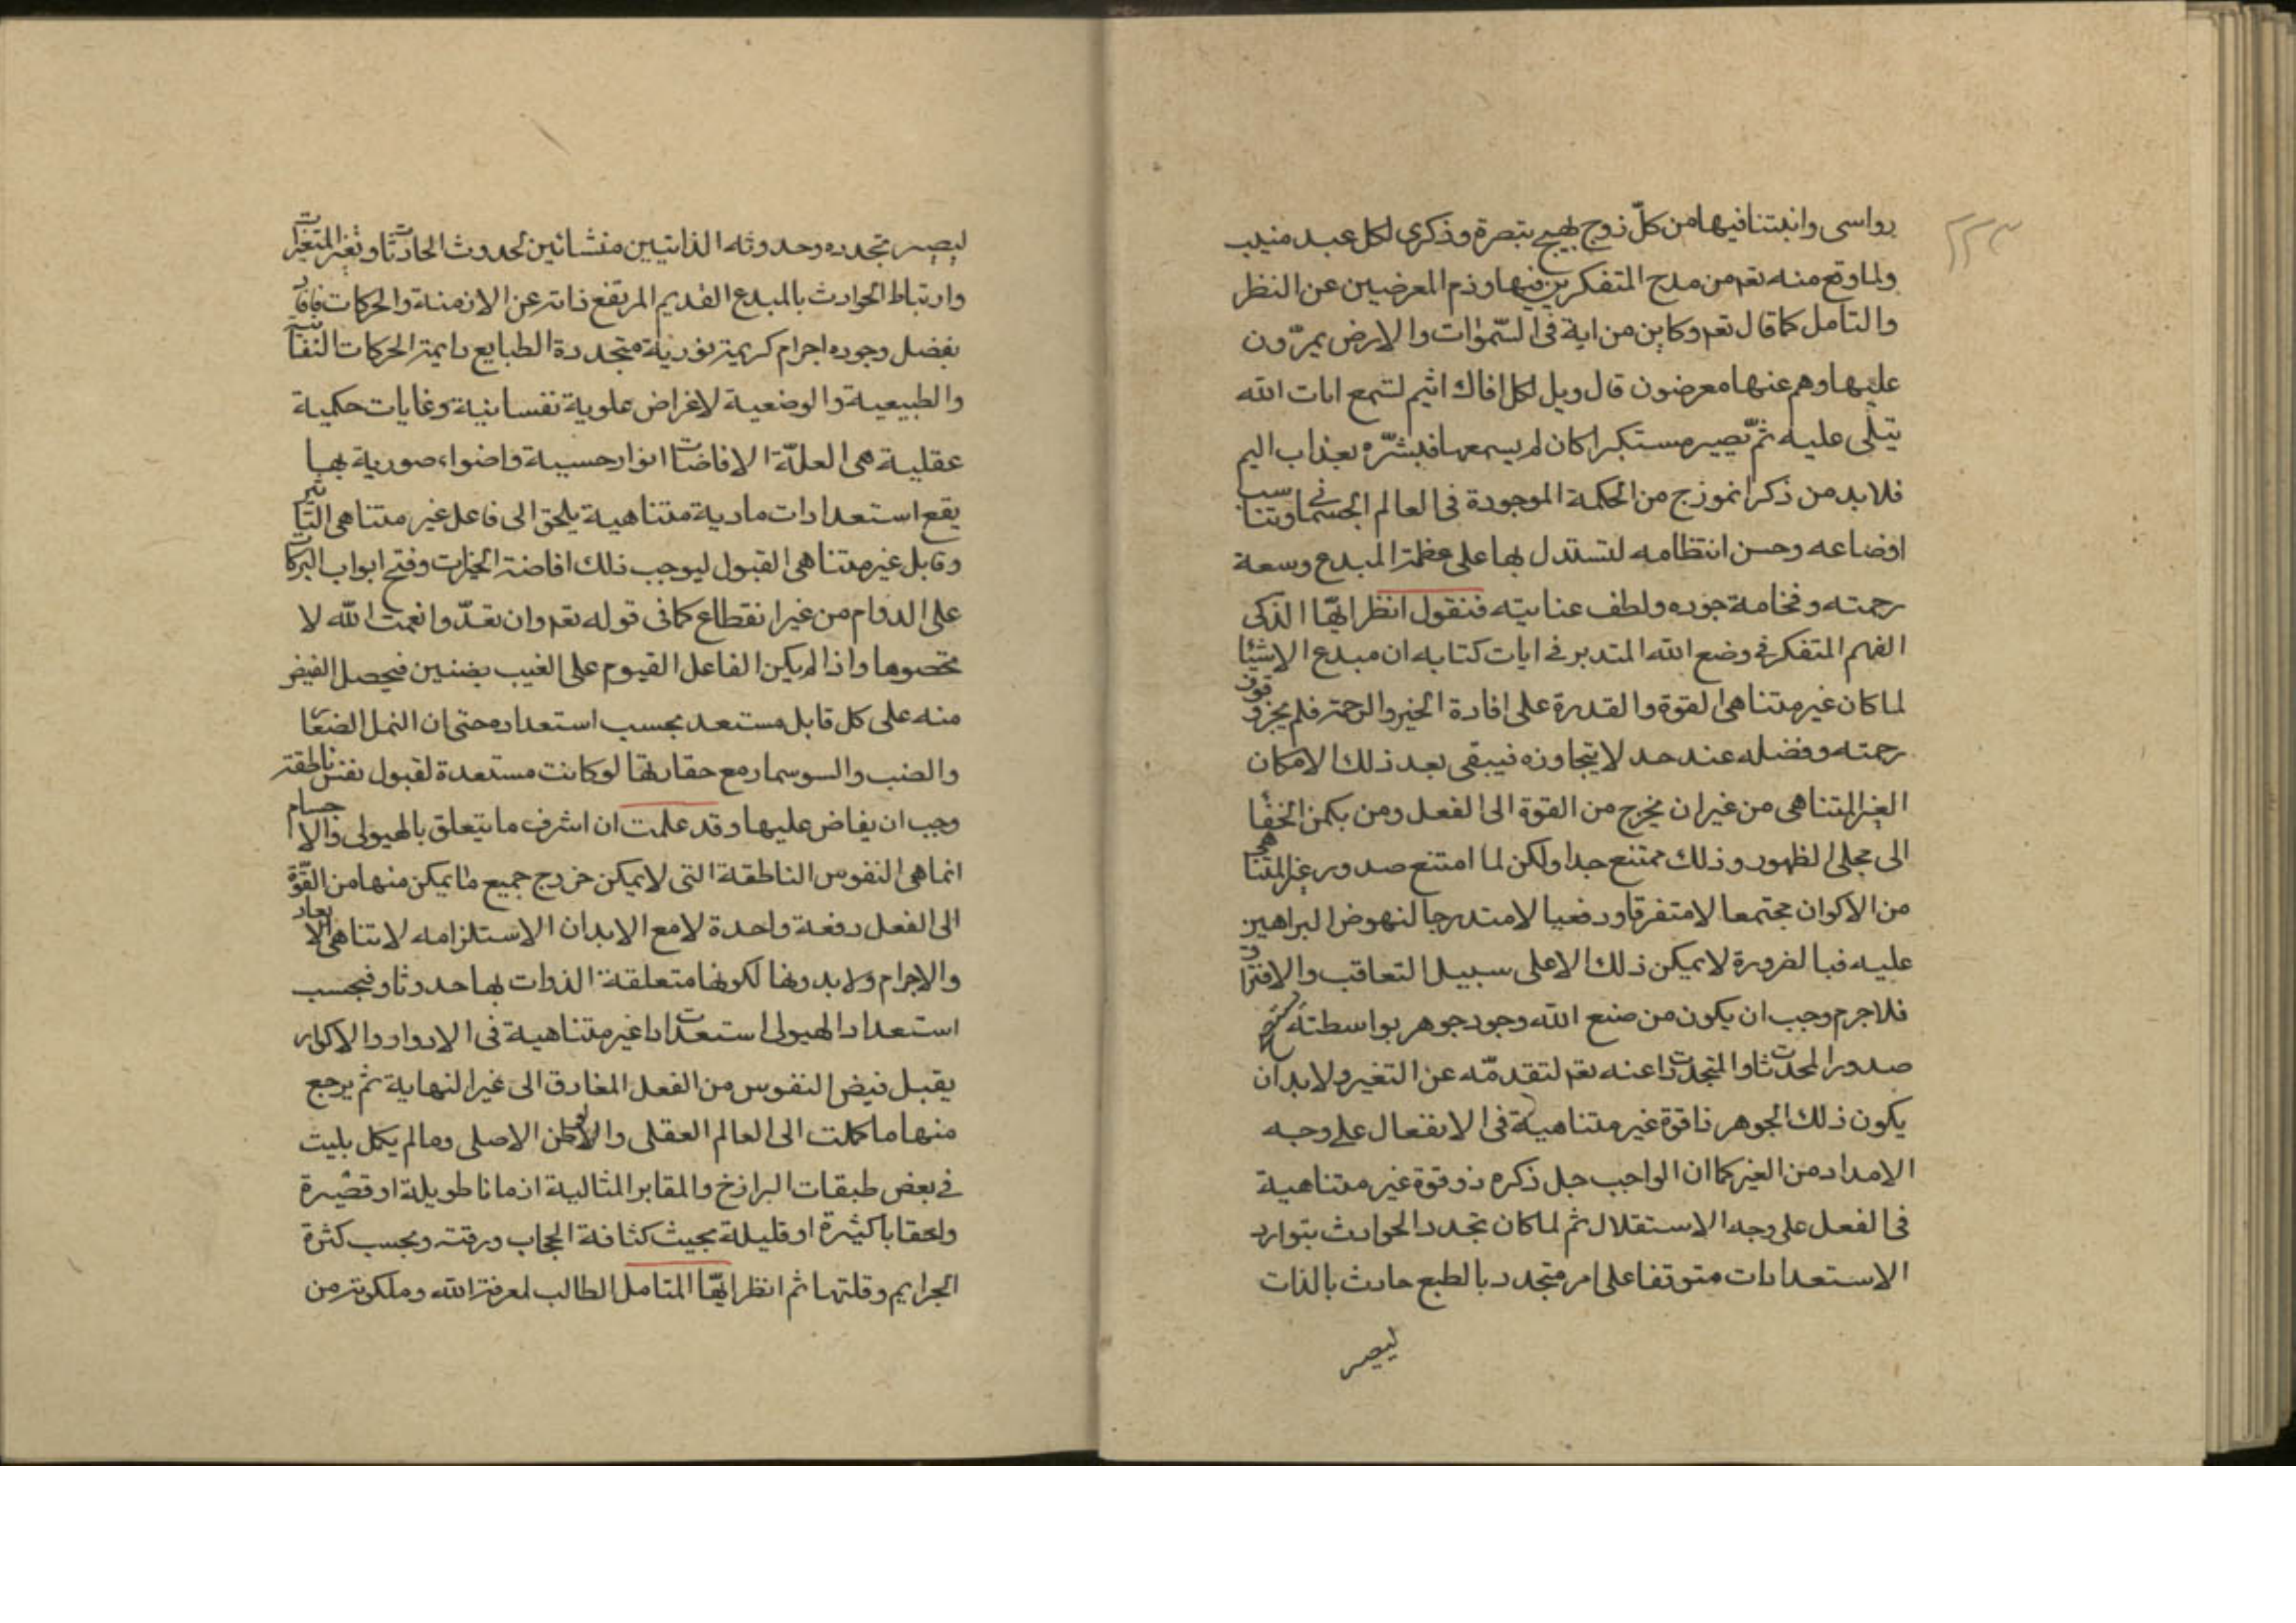 ٢٢٣
رواسى وانبتنا فيها من كلّ زوج بهيج تبصرة وذكرى لكل عبد منيب
ولما وقع منه تعم من مدح المتفكرين فيها وذم المعرضين عن النظر
والتامل كما قال تعم وكاين من اية فى السّموات والارض يمرّون
عليها وهم عنها معرضون قال ويل لكل افاك اثيم لتسمع ايات الله
يتلى عليه ثمّ يصير مستكبرا كان لم يسمعها فبشّره بعذاب اليم
فلابد من ذكر انموزج من الحكمة الموجودة فى العالم الجسمانى وتناسب
اوضاعه وحسن انتظامه لتستدل بها على عظمة المبدع وسعة
رحمته وفخامة جوده ولطف عنايته فنقول انظر ايّها الذكى
الفهم المتفكر فى وضع الله المتدبر فى ايات كتابه ان مبدع الاشيا
لما كان غير متناهى القوة والقدرة على افادة الخير والرحمة فلم يجز وقوف
رحمته وفضله عند حد لا يتجاوزه فيبقى بعد ذلك الامكان
الغير المتناهى من غير ان يخرج من القوة الى الفعل ومن بكمن الخفا
الى مجلى الظهور وذلك ممتنع جدا ولكن لما امتنع صدور غير المتناهى
من الاكوان مجتمعا لا متفرقا ودفعيا لا متدرجا لنهوض البراهين
عليه فبالضرورة لا يمكن ذلك الا على سبيل التعاقب والافتراق
فلاجرم وجب ان يكون من صنع الله وجود جوهر بواسطته
صدور المحدثات والمتجددات عنه تعم لتقدمّه عن التغير ولابد ان
يكون ذلك الجوهر ذا قوة غير متناهية فى الانفعال على وجه
الامداد من الغير كما ان الواجب جل ذكره ذو قوة غير متناهية
فى الفعل على وجه الاستقلال ثم لما كان تجدد الحوادث بتوارد
الاستعدادات متوقفا على امر متجدد بالطبع حادث بالذات
ليصير
ليصير تجدده وحدوثه الذاتيين منشائين لحدوث الحادثات وتغير المتغيرات
وارتباط الحوادث بالمبدع القديم المرتفع ذاته عن الازمنة والحركات فافاد
بفضل وجوده اجرام كريمة نورية متجددة الطبايع دايمة الحركات النفسانية
والطبيعية والوضعية لاغراض علوية نفسانية وغايات حكمية
عقلية هى العلّة الافاضات انوار حسيبة واضواء صورية بها
يقع استعدادات مادية متناهية يلحق الى فاعل غير متناهى التاثير
وقابل غير متناهى القبول ليوجب ذلك افاضة الخيرات وفتح ابواب البركات
على الدوام من غير انقطاع كما فى قوله تعم وان تعدّوا نعمت الله لا
تحصوها واذا لم يكن الفاعل القيوم على الغيب بضنين فيحصل الفيض
منه على كل قابل مستعد بحسب استعداده حتى ان النمل الضعاف
والضب والسوسمار مع حقارتها لو كانت مستعدة لقبول نفس ناطقة
وجب ان يفاض عليها وقد علمت ان اشرف ما يتعلق بالهيولى والاجسام
انما هى النفوس الناطقة التى لا يمكن خروج جميع ما يمكن منها من القوّة
الى الفعل دفعة واحدة لا مع الابدان الاستلزامه لا تناهى الابعاد
والاجرام ولا بدونها لكونها متعلقة الذوات بها حدوثا وفبحسب
استعداد الهيولى استعدادات غير متناهية فى الادوار والاكوار
يقبل فيض النفوس من الفعل المفارق الى غير النهاية ثم يرجع
منها ما كملت الى العالم العقلى والوطن الاصلى وما لم يكمل بليت
فى بعض طبقات البرازخ والمقابر المثالية ازمانا طويلة او قصيرة
واحقابا كثيرة او قليلة بحيث كثافة الحجاب ورقته وبحسب كثرة
الجرايم وقلتها ثم انظر ايّها المتامل الطالب لمعرفة الله وملكوته من